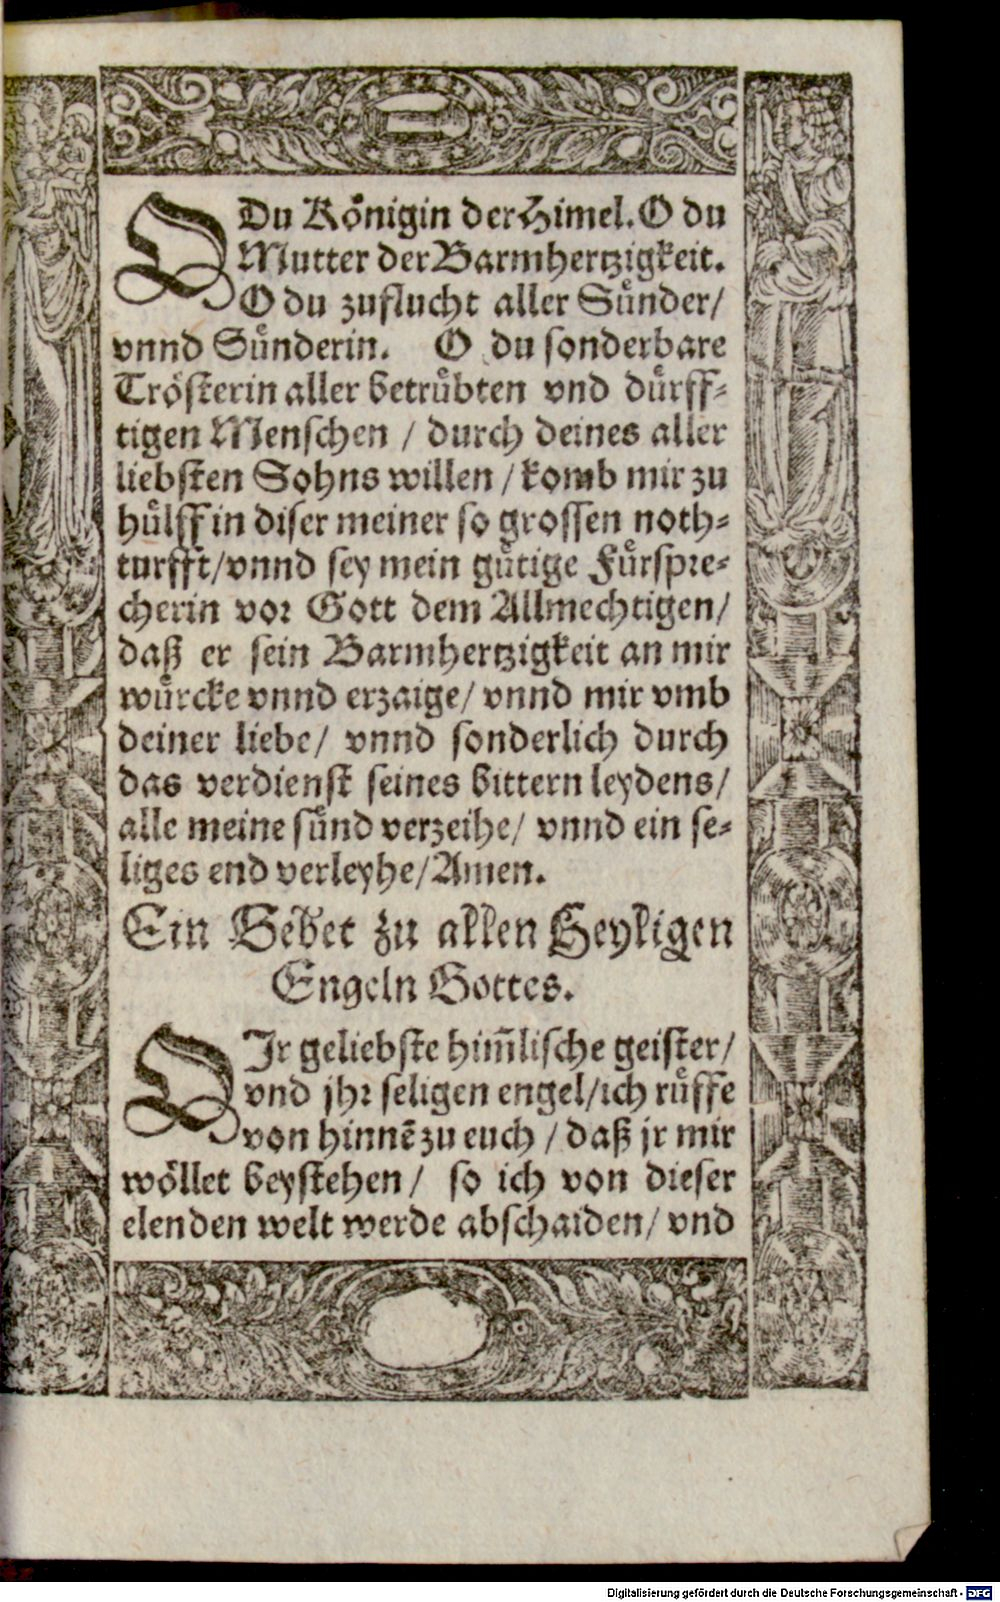 O Du Königin der Himel. O du
Mutter der Barmhertzigkeit.
O du zuflucht aller Sünder/
vnnd Sünderin. O du sonderbare
Trösterin aller betrübten vnd dürff-
tigen Menschen / durch deines aller
liebsten Sohns willen / komb mir zu
hülff in diser meiner so grossen noth-
turfft/ vnnd sey mein gütige Fürspre-
cherin vor Gott dem Allmechtigen/
daß er sein Barmhertzigkeit an mir
würcke vnnd erzaige/ vnnd mir vmb
deiner liebe/ vnnd sonderlich durch
das verdienst seines bittern leydens/
alle meine sünd verzeihe/ vnnd ein se-
liges end verleyhe/ Amen.
Ein Gebet zu allen Heyligen
Engeln Gottes.
O Ir geliebste him̃lische geister/
vnd jhr seligen engel/ ich rüffe
von hinnẽ zu euch / daß jr mir
wöllet beystehen/ so ich von dieser
elenden welt werde abschaiden/ vnd
Digitalisierung gefördert durch die Deutsche Forschungsgemeinschaft - DFG